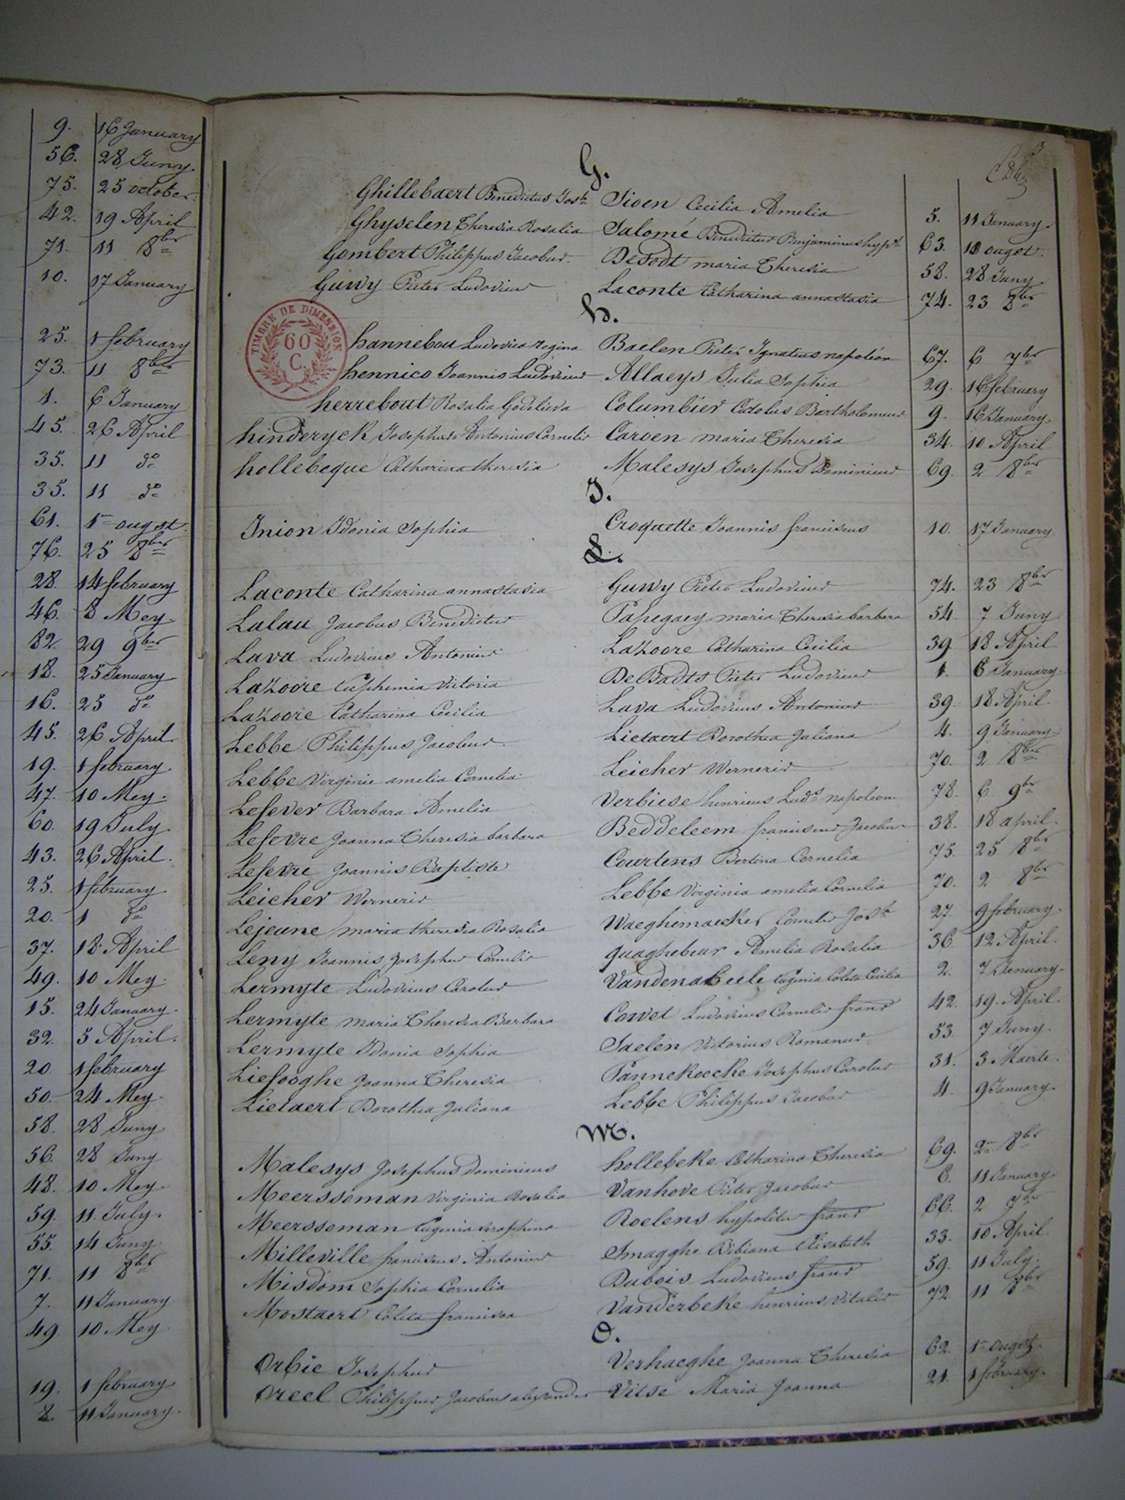 9. 16 January
56. 28 Juny
75. 25 october
42. 19 April
71. 11 8bre
10. 17 January
25. 1 february
73. 11 8bre
1. 6 January
45. 26 April
35. 11 do
35. 11 do
61. 1er ougst
76. 25 8bre
28. 14 february
46. 8 Mey
82. 29 9bre
18. 25 January
16. 25 do
45. 26 April
19. 1 february
47. 10 Mey
60. 19 July
43. 26 April
25. 1 february
20. 1 do
37. 18 April
49. 10 Mey
15. 24 January
32. 5 April
20. 1 february
50. 24 Mey
58. 28 Juny
56. 28 Juny
48. 10 Mey
59. 11 July
55. 14 Juny
71. 11 8bre
7. 11 January
49 10 Mey
19. 1 february
8. 11 January
G.
Ghillebaert Benedictus Josh Sioen Cecilia Amelia 5. 11 January
Ghyselen Theresia Rosalia Salomé Benedictus Benjaminus hypt 63. 18 ougst
Gombert Philippus Jacobus Desodt maria Theresia 58. 28 Juny
Guwy Pieter Ludovicus Laconte Catharina annastasia 74. 23 8bre
TIMBRE DE DIMENSION
60
C.
h.
hannebou Ludovica regina Baelen Pieter Ignatius napoléon 67. 6 7bre
hennico Joannis Ludovicus Allaeys Julia Sophia 29. 16 february
herrebout Rosalia Godelieva Columbier Carolus Bartholomeus 9. 16 January
hinderyck Josephus Antonius Cornelis Caroen maria Theresia 34. 10 April
hollebeque Catharina theresia Malesys Josephus Dominicus 69. 2 8bre
I.
Inion Idonia Sophia Croquette Joannis franciscus 10. 17 January
L.
Laconte Catharina annastasia Guwy Pieter Ludovicus 74. 23 8bre
Lalau Jacobus Benedictus Papegaey maria Theresia barbara 54. 7 Juny
Lava Ludovicus Antonius Lazoore Catharina Cecilia 39. 18 April
Lazoore Euphemia Victoria DeBadts Pieter Ludovicus 1. 6 January
Lazoore Catharina Cecilia Lava Ludovicus Antonius 39. 18 April
Lebbe Philippus Jacobus Lietaert Dorothea Juliana 4. 9 January
Lebbe Virginie amelia Cornelia Leicher Werneris 70. 2 8bre
Lefever Barbara Amelia Verbiese henricus Luds napoleon 78. 6 9bre
Lefevre Joanna Theresia barbara Beddeleem franciscus Jacobus 38. 18 april
Lefevre Joannis Baptiste Courtens Bertina Cornelia 75. 25 8bre
Leicher Werneris Lebbe Virginia amelia Cornelia 70. 2 8bre
Lejeune maria theresia Rosalia Waeghemaecker Cornelis Josh 27. 9 february
Leny Joannis Josephus Cornelis quaghebeur Amelia Rosalia 36. 12 April
Lermyte Ludovicus Carolus Vandenabeele Eugenia Coleta Cecilia 2. 7 January
Lermyte maria Theresia Barbara Cowet Ludovicus Cornelis frans 42. 19 April
Lermyte Idonia Sophia Saelen Victorius Romanus 53. 7 Juny
Liefooghe Joanna Theresia Pannekoecke Josephus Carolus 31. 3 Maerte
Lietaert Dorothea Juliana Lebbe Philippus Jacobus 4. 9 January
M.
Malesys Josephus Dominicus hollebeke Catharina Theresia 69. 2 8bre
Meerssoman Virginia Rosalia Vanhove Pieter Jacobus 6. 11 January
Meersseman Eugenia seraphina Roelens hypolite frans 66. 2 7bre
Milleville franciscus Antonius Smagghe Bibiana Elisabeth 33. 10 April
Misdom Sophia Cornelia Dubois Ludovicus frans 59. 11 July
Mostaert Coleta francisca Vanderbeke henricus Vitalis 72. 11 8bre
O.
Orbie Josephus Verhaeghe Joanna Theresia 62. 1er ougst
Oreel Philippus Jacobus alexander Vitse Maria Joanna 21. 1 february